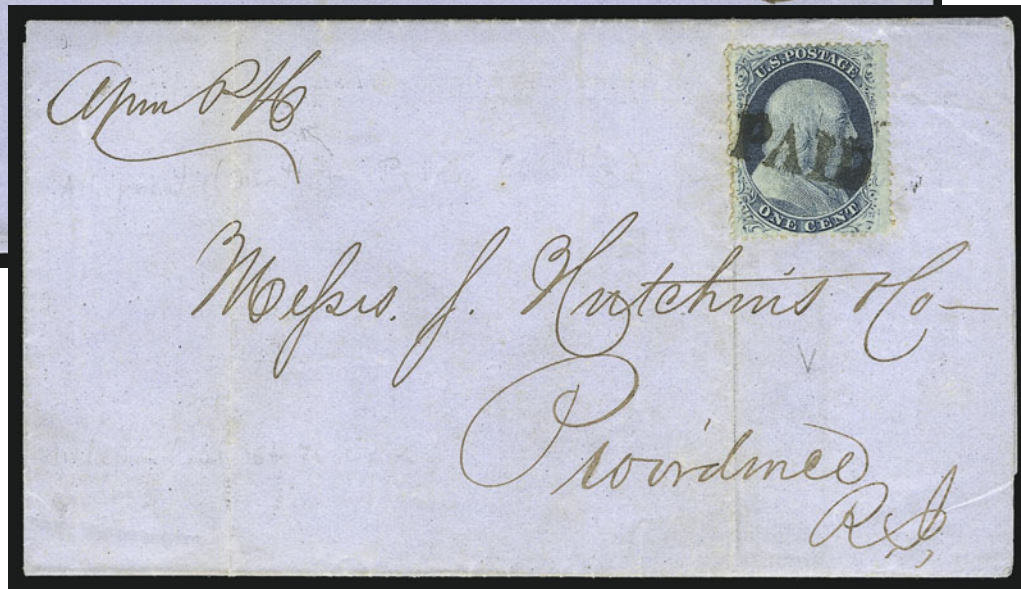 U.S. POSTAGE
PAID
ONE CENT
Messrs. J. Hutchins & Co
Providence
R.I.